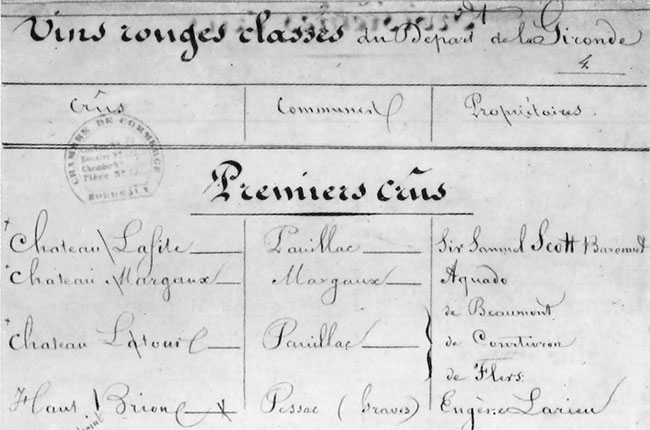 Vins rouges classés du Départ dt de la Gironde
4.
Crûs Communes Propriétaires
CHAMBRE DE COMMERCE
BORDEAUX
Premiers crûs
Chateau Lafite Pauillac Sir Samuel Scott Baronnet
Chateau Margaux Margaux Aguado
de Beaumont
Chateau Latour Pauillac de Courtivron
de Flers
Haut Brion Pessac (Graves) Eugène Larieu